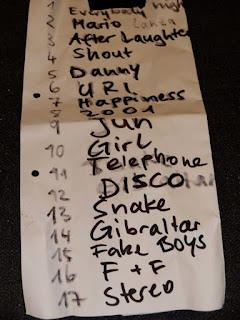 1 Everybody
2 Mario Lanza
3 After Laughter
4 Shout
5 Danny
6 URL
7 Happiness
8 2001
9 Jun
10 Girl
11 Telephone
12 DISCO
13 Snake
14 Gibraltar
15 Fake BOYS
16 F + F
17 Stereo